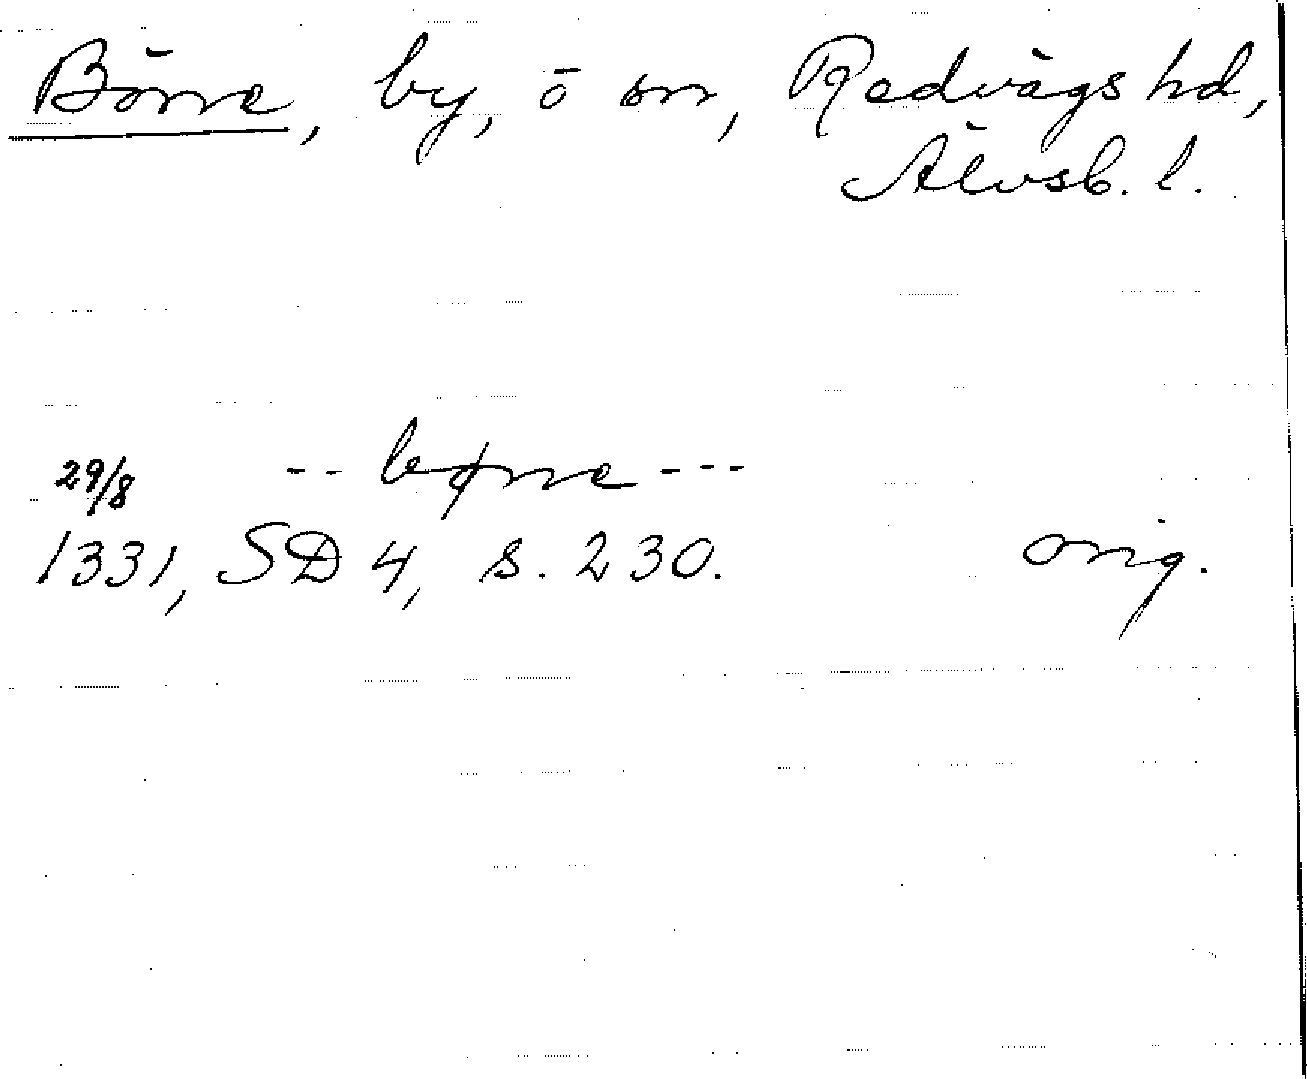 Börre, by, ö sn, Redvägs hd,
Älvsb. l.
29/8 -- børre ---
1331, SD 4, s. 230. orig.